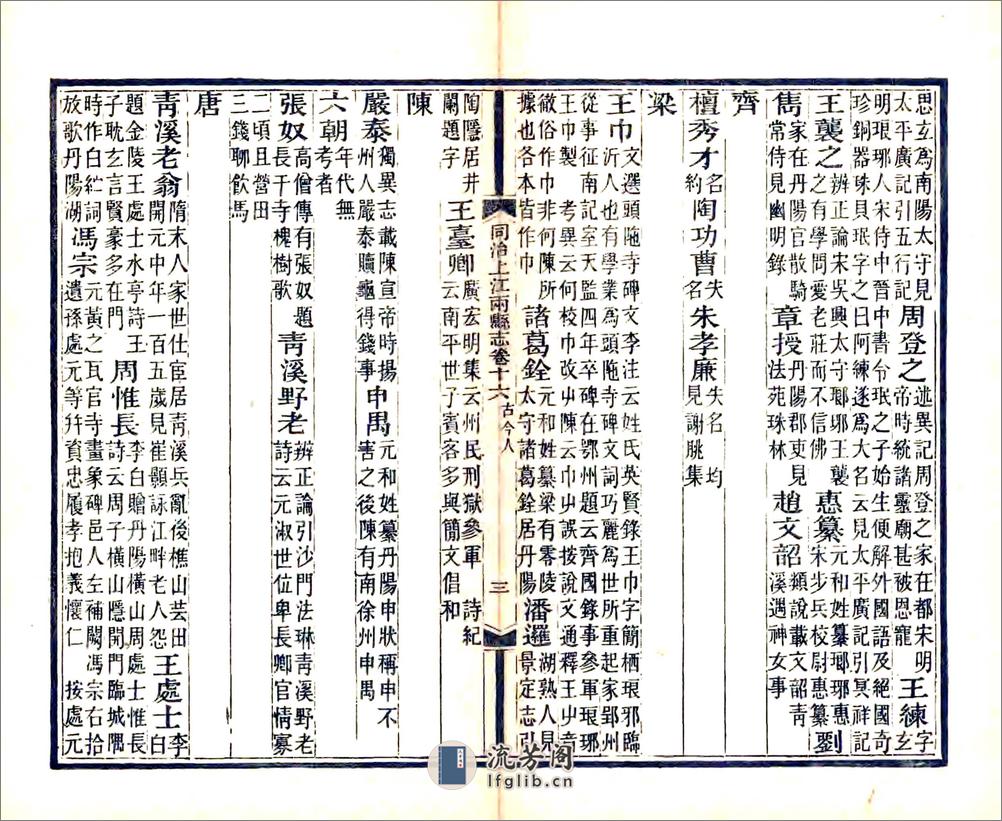 思玄爲南陽太守見
太平廣記引五行記
周登之
述異記周登之家在都宋明
帝時統諸靈廟甚被恩寵
王練
字
玄
明琅琊人宋侍中晉中書令珉之子始生便解外國語及絕國奇
珍銅器珠貝珉字之曰阿練遂爲大名云見太平廣記引冥祥記
王襲之
辨正論宋吳興太守瑯琊王襲
之有學問愛老莊而不信佛
惠纂
元和姓纂瑯琊惠
宋步兵校尉惠纂
劉
雋
家在丹陽官散騎
常侍見幽明錄
章授
丹陽郡吏見
法苑珠林
趙文韶
纇說載文韶靑
溪遇神女事
齊
檀秀才
名
約
陶功曹
失
名
朱孝廉
失名 均
見謝朓集
梁
王巾
文選頭陁寺碑文李注云姓氏英賢錄王巾字簡栖琅邪臨
沂人也有學業爲頭陁寺碑文詞巧麗爲世所重起家郢州
從事征南記室天監四年卒碑在鄂州題云齊國錄事參軍琅琊
王巾製 考異云何校巾改屮陳云巾屮誤按說文通釋王屮音
徹俗作巾非何陳所
據也各本皆作巾
諸葛銓
元和姓纂梁有零陵
太守諸葛銓居丹陽
潘邏
湖熟人見
景定志引
同治上江兩縣志卷十六 古今人 三
陶隱居井
闌題字
王臺卿
廣宏明集云州民刑獄參軍 詩紀
云南平世子賓客多與簡文倡和
陳
嚴泰
獨異志載陳宣帝時揚
州人嚴泰贖龜得錢事
申禺
元和姓纂丹陽申狀稱申不
害之後陳有南徐州申禺
六朝
年代無
考者
張奴
高僧傳有張奴題
長干寺槐樹歌
靑溪野老
辨正論引沙門法琳靑溪野老
詩云元淑世位卑長卿官情寡
二頃且營田
三錢聊飲馬
唐
靑溪老翁
隋末人家世仕宦居靑溪兵亂後樵山芸田
開元中年一百五歲見崔顥詠江畔老人怨
王處士
李
白
題金陵王處士水亭詩王
子耽玄言賢豪多在門
周惟長
李白贈丹陽橫山周處士惟長
詩云周子橫山隱開門臨城隅
時作白紵詞
放歌丹陽湖
馮宗
元黃之瓦官寺畫象碑邑人左補闕馮宗右拾
遺孫處元等幷資忠履孝抱義懷仁 按處元
流芳阁
lfglib.cn